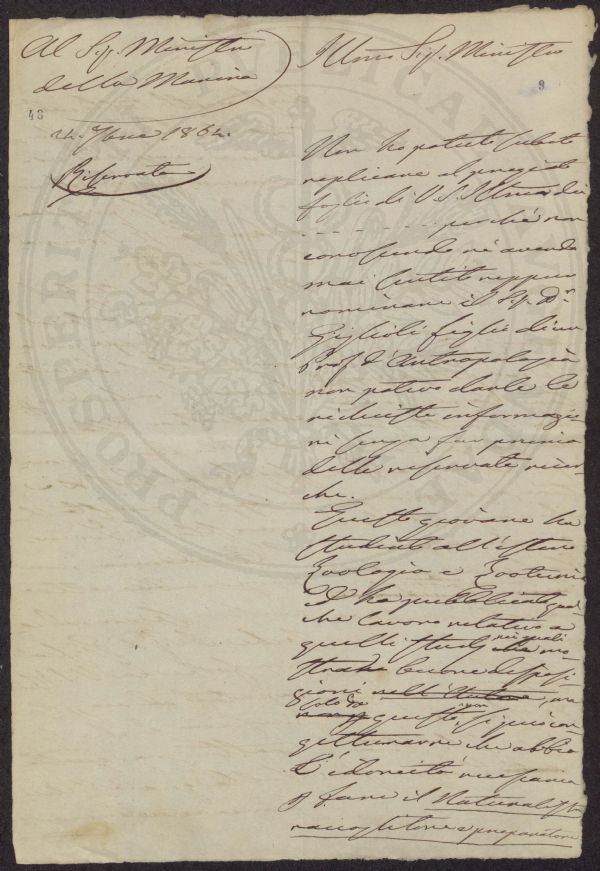 Al Sig. Ministro
della Marina
48
24. 1864.
Riservata
Illmo Sig. Ministro
9
Non ho potuto subito
replicare al pregiato
foglio di V. S. Illma del
- - - - - - - - perché non
conoscendo né avendo
mai sentito neppur
nominare il Sig. Dr.
Giglioli figlio di un
Prof. d'Antropologia
non potevo darle le
richieste informazio
ni senza far prima
delle riservate ricer
che.
Questo giovane ha
studiato all'estero
Zoologia e Zootomia
ed ha pubblicato qual
che lavoro relativo a
quelli studj nei quali
mostra buone disposi
zioni nell'
solo da questo, non si può con
getturarne che abbia
l'idoneità necessaria
p. fare il Naturalista
raccoglitore e preparatore